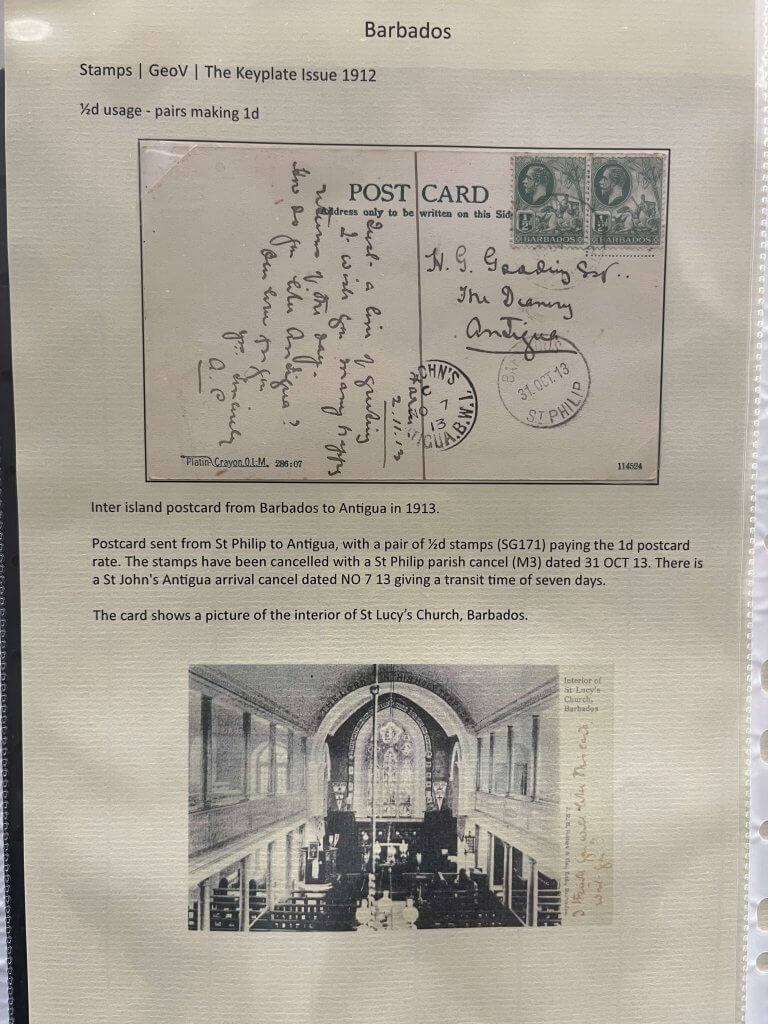 Barbados
Stamps | GeoV | The Keyplate Issue 1912
½d usage - pairs making 1d
POST CARD
Address only to be written on this Sid
½D ½D
BARBADOS BARBADOS
H. G. Gooding Esq..
The Deanery
Antigua
Just a line of greeting
I wish you many happy
returns of the day.
How do you like Antigua?
Our love to you
yrs. sincerely
2.11.13
31.OCT.13
ST PHILIP
OHN'S
7
13
TIGUA.B.W.I.
Platin Crayon.O.L.M. 286:07
114524
Inter island postcard from Barbados to Antigua in 1913.
Postcard sent from St Philip to Antigua, with a pair of ½d stamps (SG171) paying the 1d postcard
rate. The stamps have been cancelled with a St Philip parish cancel (M3) dated 31 OCT 13. There is
a St John's Antigua arrival cancel dated NO 7 13 giving a transit time of seven days.
The card shows a picture of the interior of St Lucy's Church, Barbados.
Interior of
St Lucy's
Church,
Barbados
I think you will like this card